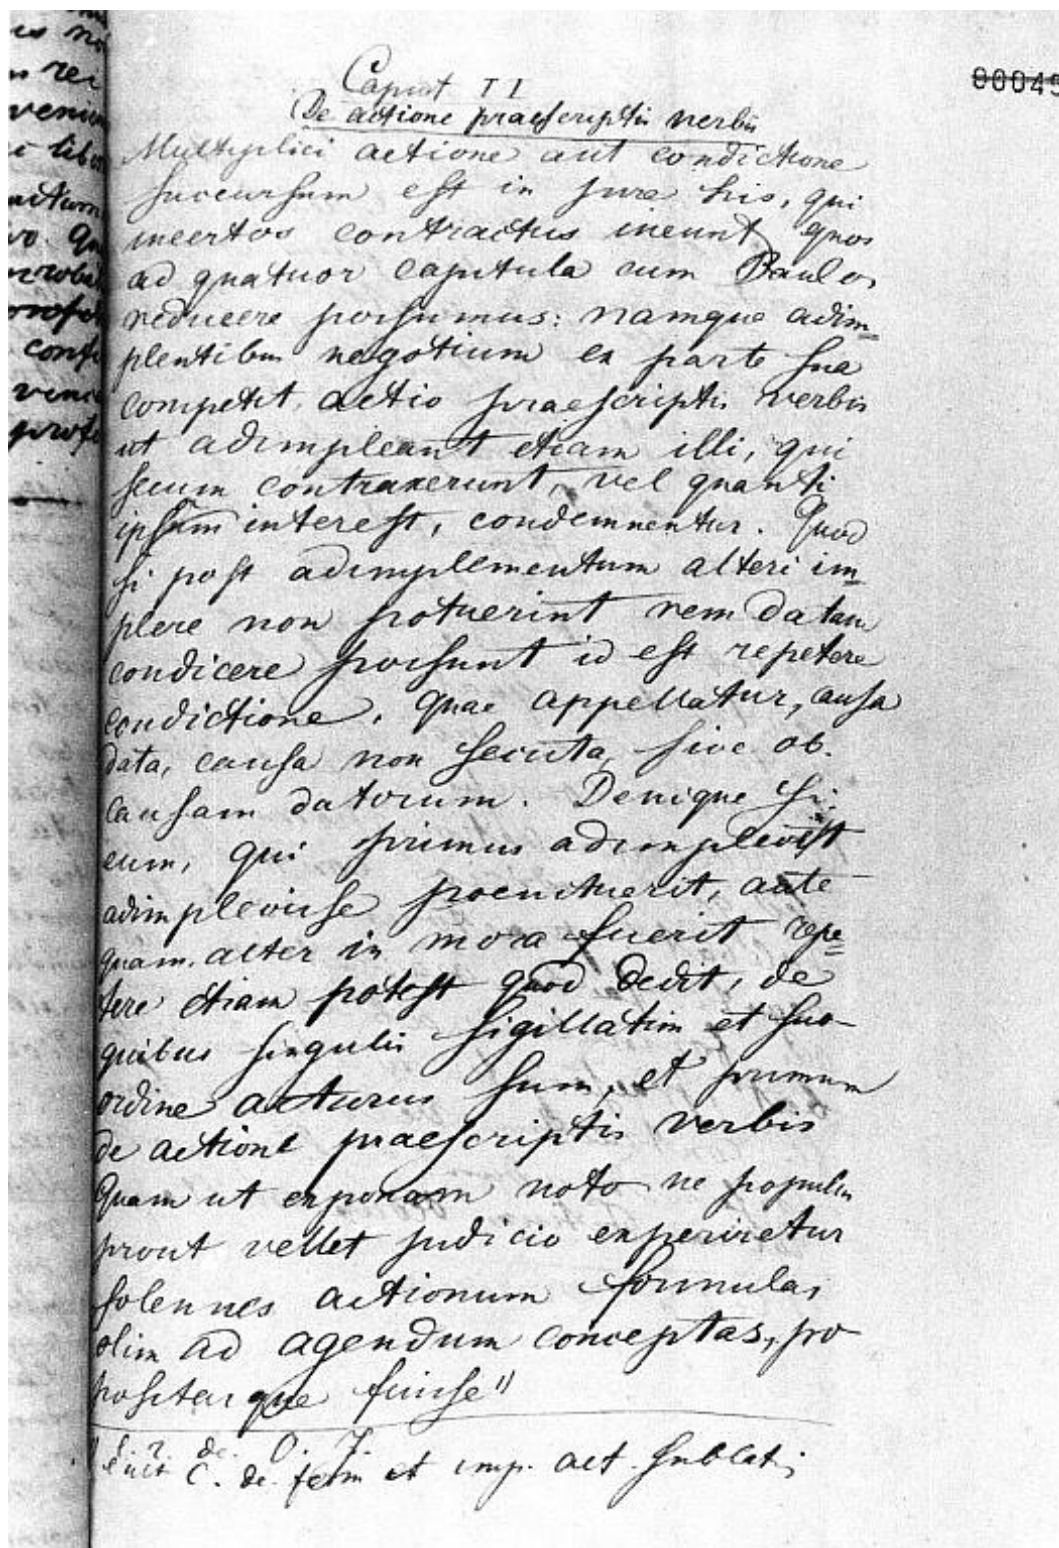 00045
Caput II
De actione praescriptis verbis
Multiplici actione aut condictione
succursum est in jure his, qui
incertos contractus ineunt, quos
ad quatuor capitula cum Paulo,
reducere possumus: namque adim=
plentibus negotium ex parte sua
competit actio praescriptis verbis
ut adimpleant etiam illi, qui
secum contraxerunt, vel quanti
ipsum interest, condemnentur. Quod
si post adimplementum alteri im=
plere non potuerint rem datam
condicere possunt id est repetere
condictione, quae appellatur, causa
data, causa non secuta, sive ob.
causam datorum. Denique si
eum, qui primus adimplevit
adimplevisse poenituerit, ante
quam alter in mora fuerit repe=
tere etiam potest quod dedit, de
quibus singulis sigillatim et suo
ordine acturus sum, et primum
de actione praescriptis verbis
Quam ut exponam noto ne populus
prout vellet judicio experiretur
solennes actionum formulas
olim ad agendum conceptas, pro
positasque fuisse 1)
1) de O. J.
C. de form et imp. act. sublatis